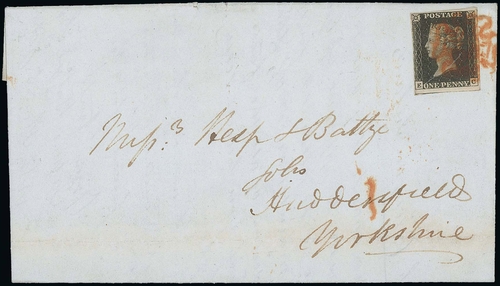 POSTAGE
ONE PENNY
Mess.rs Hesp & Battye
Solrs
Huddersfield
Yorkshire